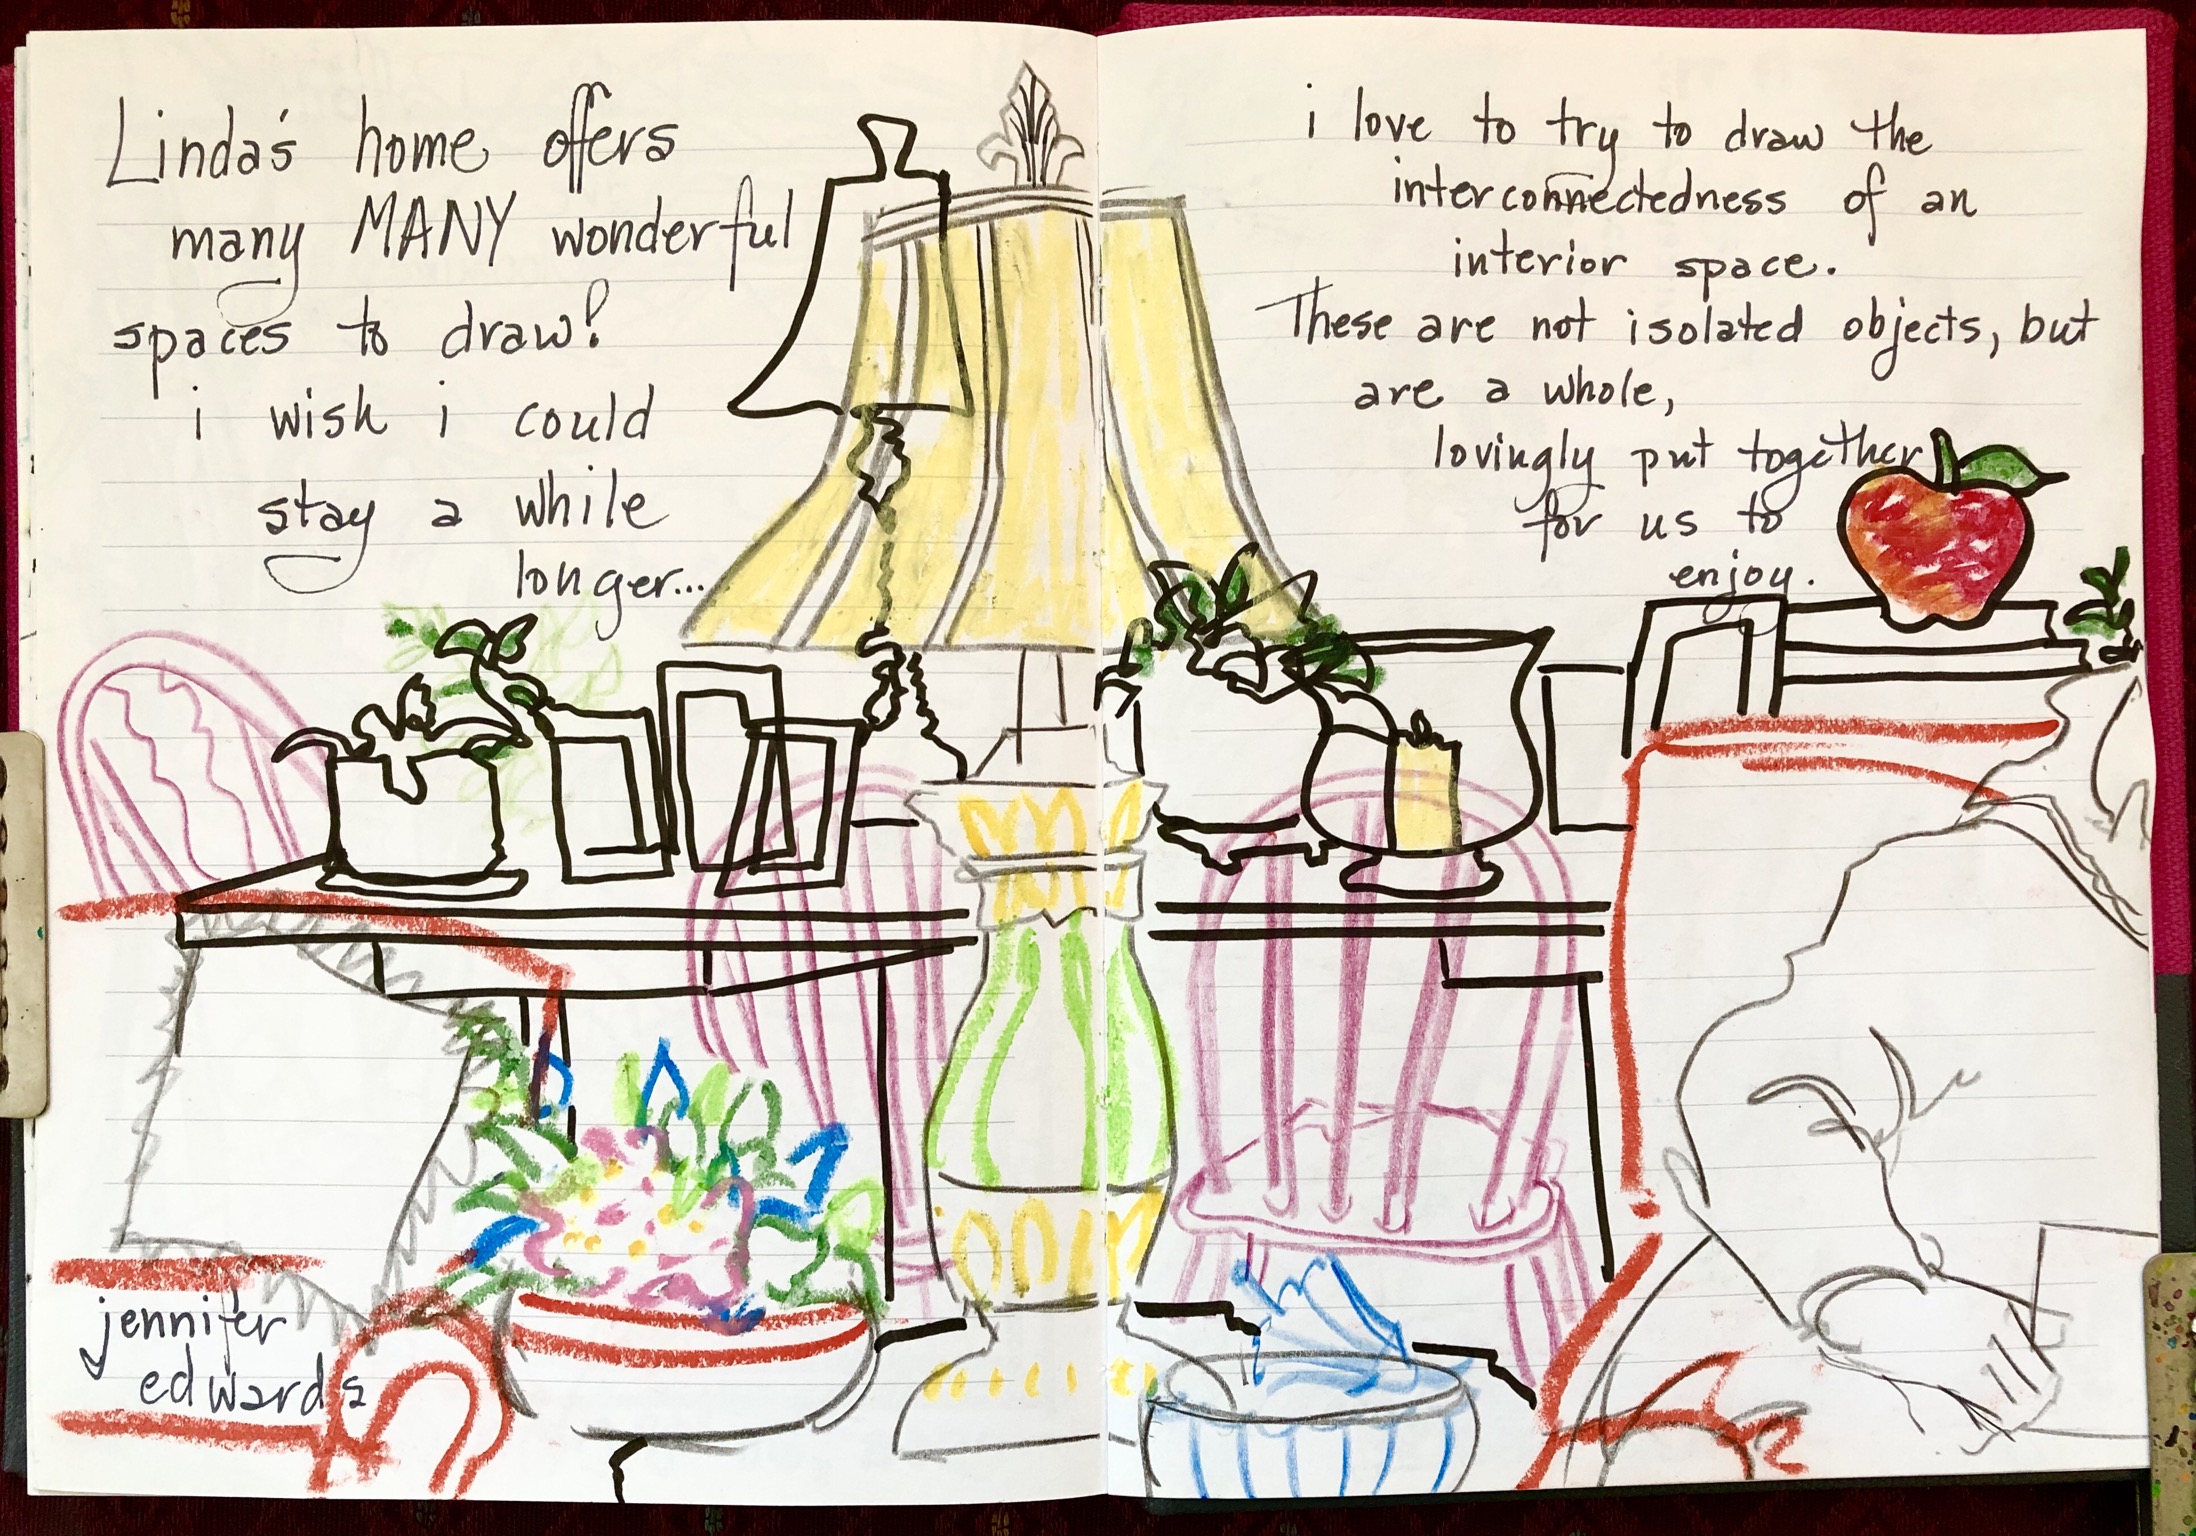 Linda's home offers
many MANY wonderful
spaces to draw!
i wish i could
stay a while
longer...
jennifer
edwards
i love to try to draw the
interconnectedness of an
interior space.
These are not isolated objects, but
are a whole,
lovingly put together
for us to
enjoy.